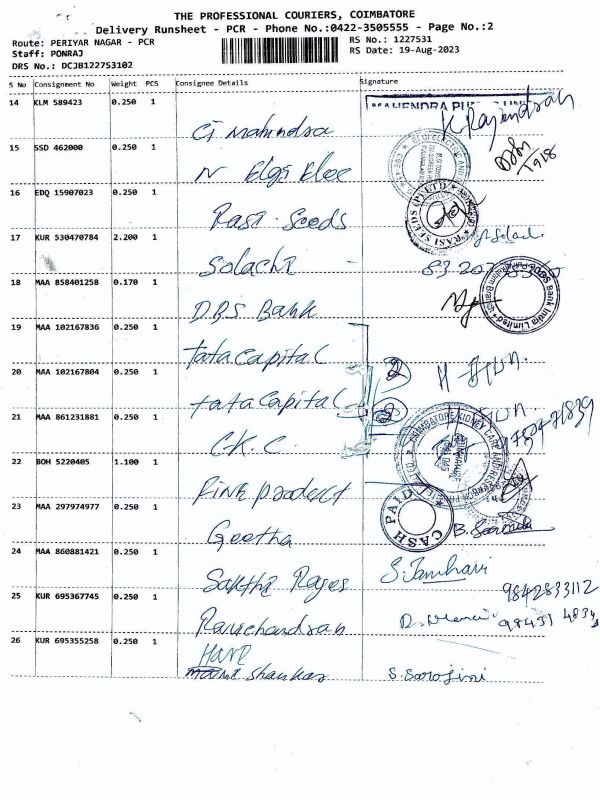 THE PROFESSIONAL COURIERS, COIMBATORE
Delivery Runsheet - PCR - Phone No.:0422-3505555 - Page No.:2
Route: PERIYAR NAGAR - PCR
RS No.: 1227531
Staff: PONRAJ
RS Date: 19-Aug-2023
DRS No.: DCJB122753102
S No Consignment No Weight PCS Consignee Details Signature
14 KLM 589423 0.250 1
MAHENDRA PUMPS
K. Rajendran
G Mahindra
15 SSD 462000 0.250 1
N Elgi Elec
16 EDQ 15907023 0.250 1
Rasi Seeds
RASI SEEDS (P) LTD
17 KUR 530470784 2.200 1
Solachi
18 MAA 858401258 0.170 1
DBS Bank
DBS Bank India Limited
19 MAA 102167836 0.250 1
Tata Capital
20 MAA 102167804 0.250 1
2
Tata Capital
21 MAA 861231881 0.250 1
2
C.K.C.
COIMBATORE KIDNEY CARE AND RESEARCH
22 BOH 5220405 1.100 1
Fine product
CASH PAID
23 MAA 297974977 0.250 1
Geetha
24 MAA 860881421 0.250 1
Sakthi Rages
25 KUR 695367745 0.250 1
9842833112
Ramchandran
26 KUR 695355258 0.250 1
Hari
Shankar
S. Sarojini